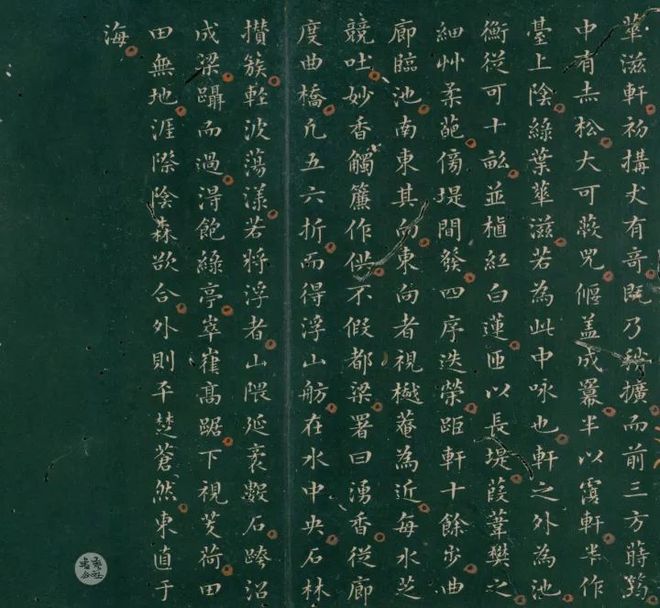 華滋軒初搆犬有竒既乃稍擴而前三方蒔筠
中有赤松大可蔽兕偃盖成羃半以覆軒半作
臺上陰綠葉華滋若為此中咏也軒之外為池
衡從可十畝並植紅白蓮匝以長堤葭葦樊之
細艸柔葩傍堤間發四序迭榮距軒十餘步曲
廊臨池南東其向東向者視樾菴為近每水芝
競吐妙香觸簾作供不假都梁署曰湧香從廊
度曲橋凡五六折而得浮山舫在水中央石林
攢簇輕波蕩漾若將浮者山隈延袤㲄石跨沼
成梁躡而過得飽綠亭崒嶉高踞下視芰荷田
田無地涯際陰森欲合外則平楚蒼然東直于
海